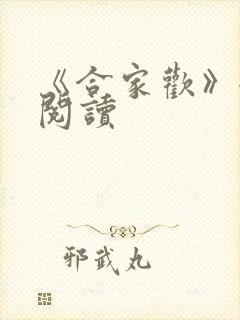 《合家歡》
閱讀
邪武丸